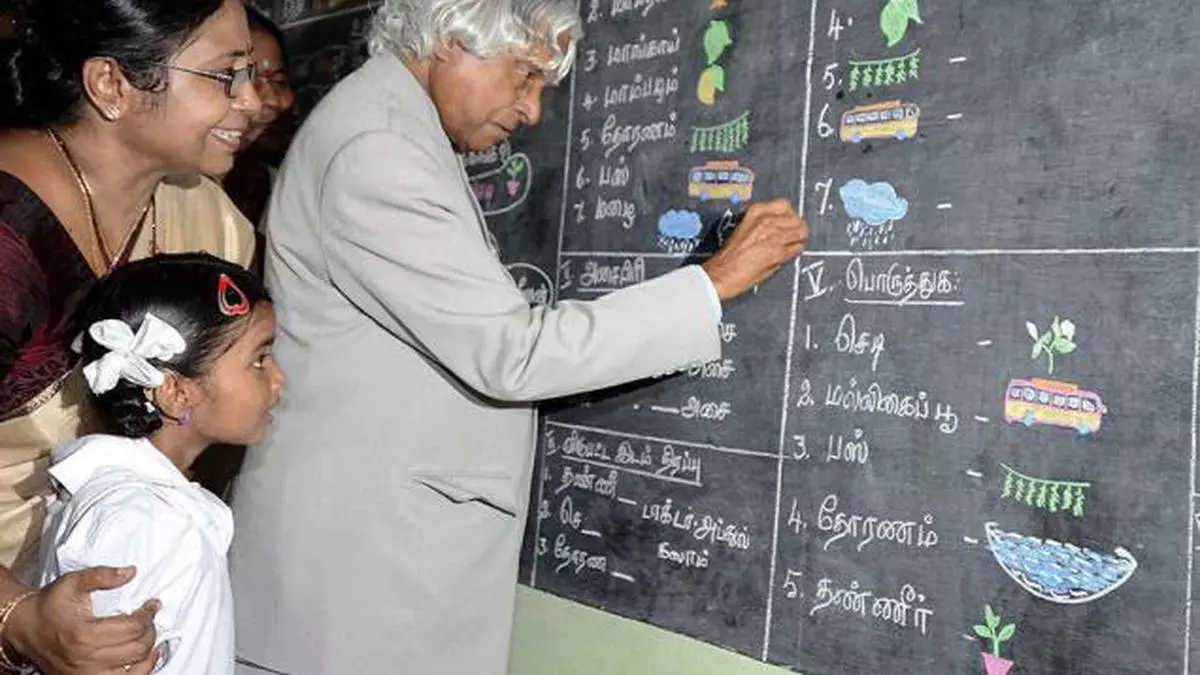 3. மாங்காய்
4. மாம்பழம்
5. தோரணம்
6. பஸ்
7. மழை
4.
5. -
6. -
7. -
அசைபிரி
அசை
அசை
விடுபட்ட இடம் நிரப்பு
1. தண்ணி_
2. செ_
3. தோரண_
டாக்டர்.அப்துல்
கலாம்
V. பொருத்துக:
1. செடி -
2. மல்லிகைப் பூ -
3. பஸ் -
4. தோரணம் -
5. தண்ணீர் -